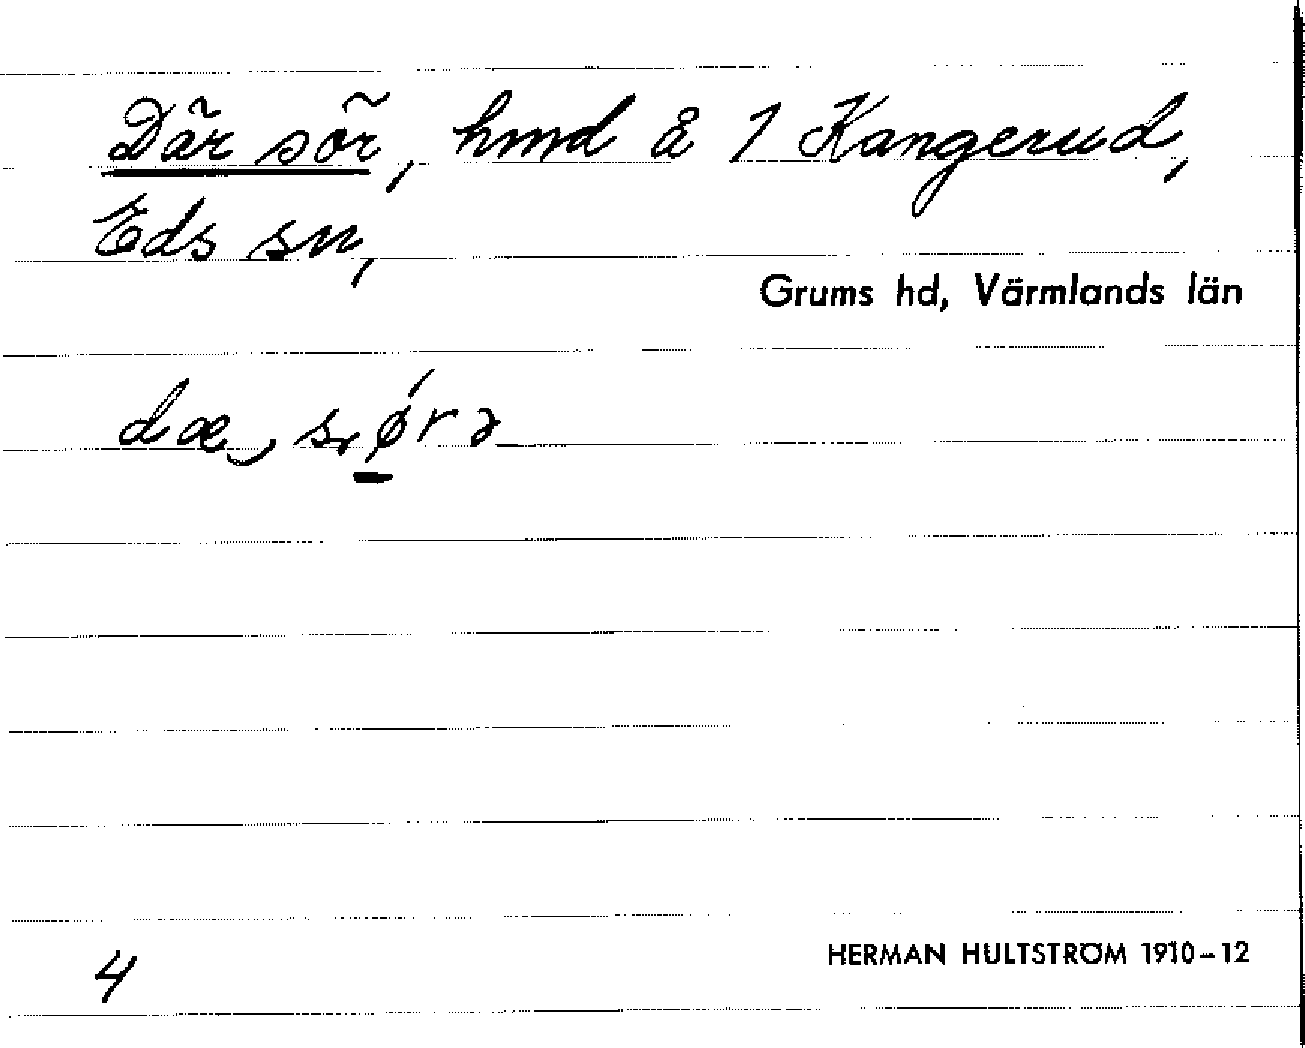 Där sör, hmd å 1 Kangerud,
Eds sn,
Grums hd, Värmlands län
dæ, sǿrə
4
HERMAN HULTSTRÖM 1910–12